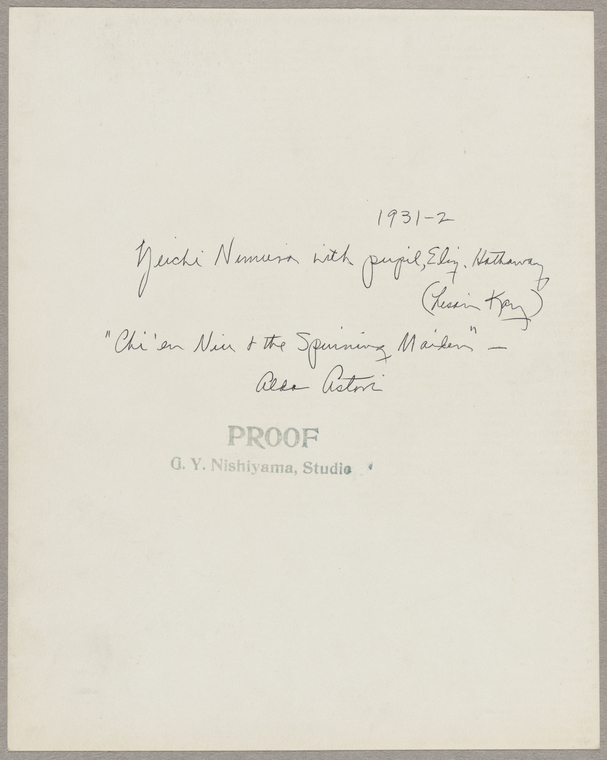 1931-2
Yeichi Nimura with pupil, Eliz. Hathaway
(Lisan Kay)
"Chi'en Niu & the Spinning Maiden" —
Aldo Astori
PROOF
G. Y. Nishiyama, Studio